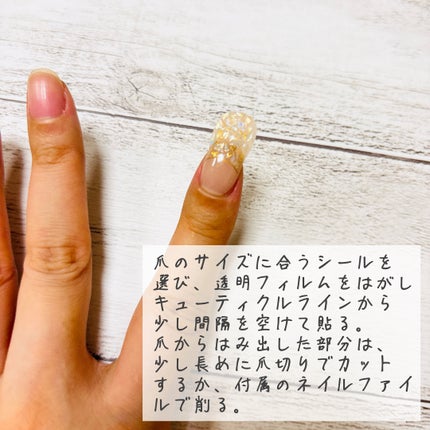 爪のサイズに合うシールを
選び、透明フィルムをはがし
キューティクルラインから
少し間隔を空けて貼る。
爪からはみ出した部分は、
少し長めに爪切りでカット
するか、付属のネイルファイ
ルで削る。